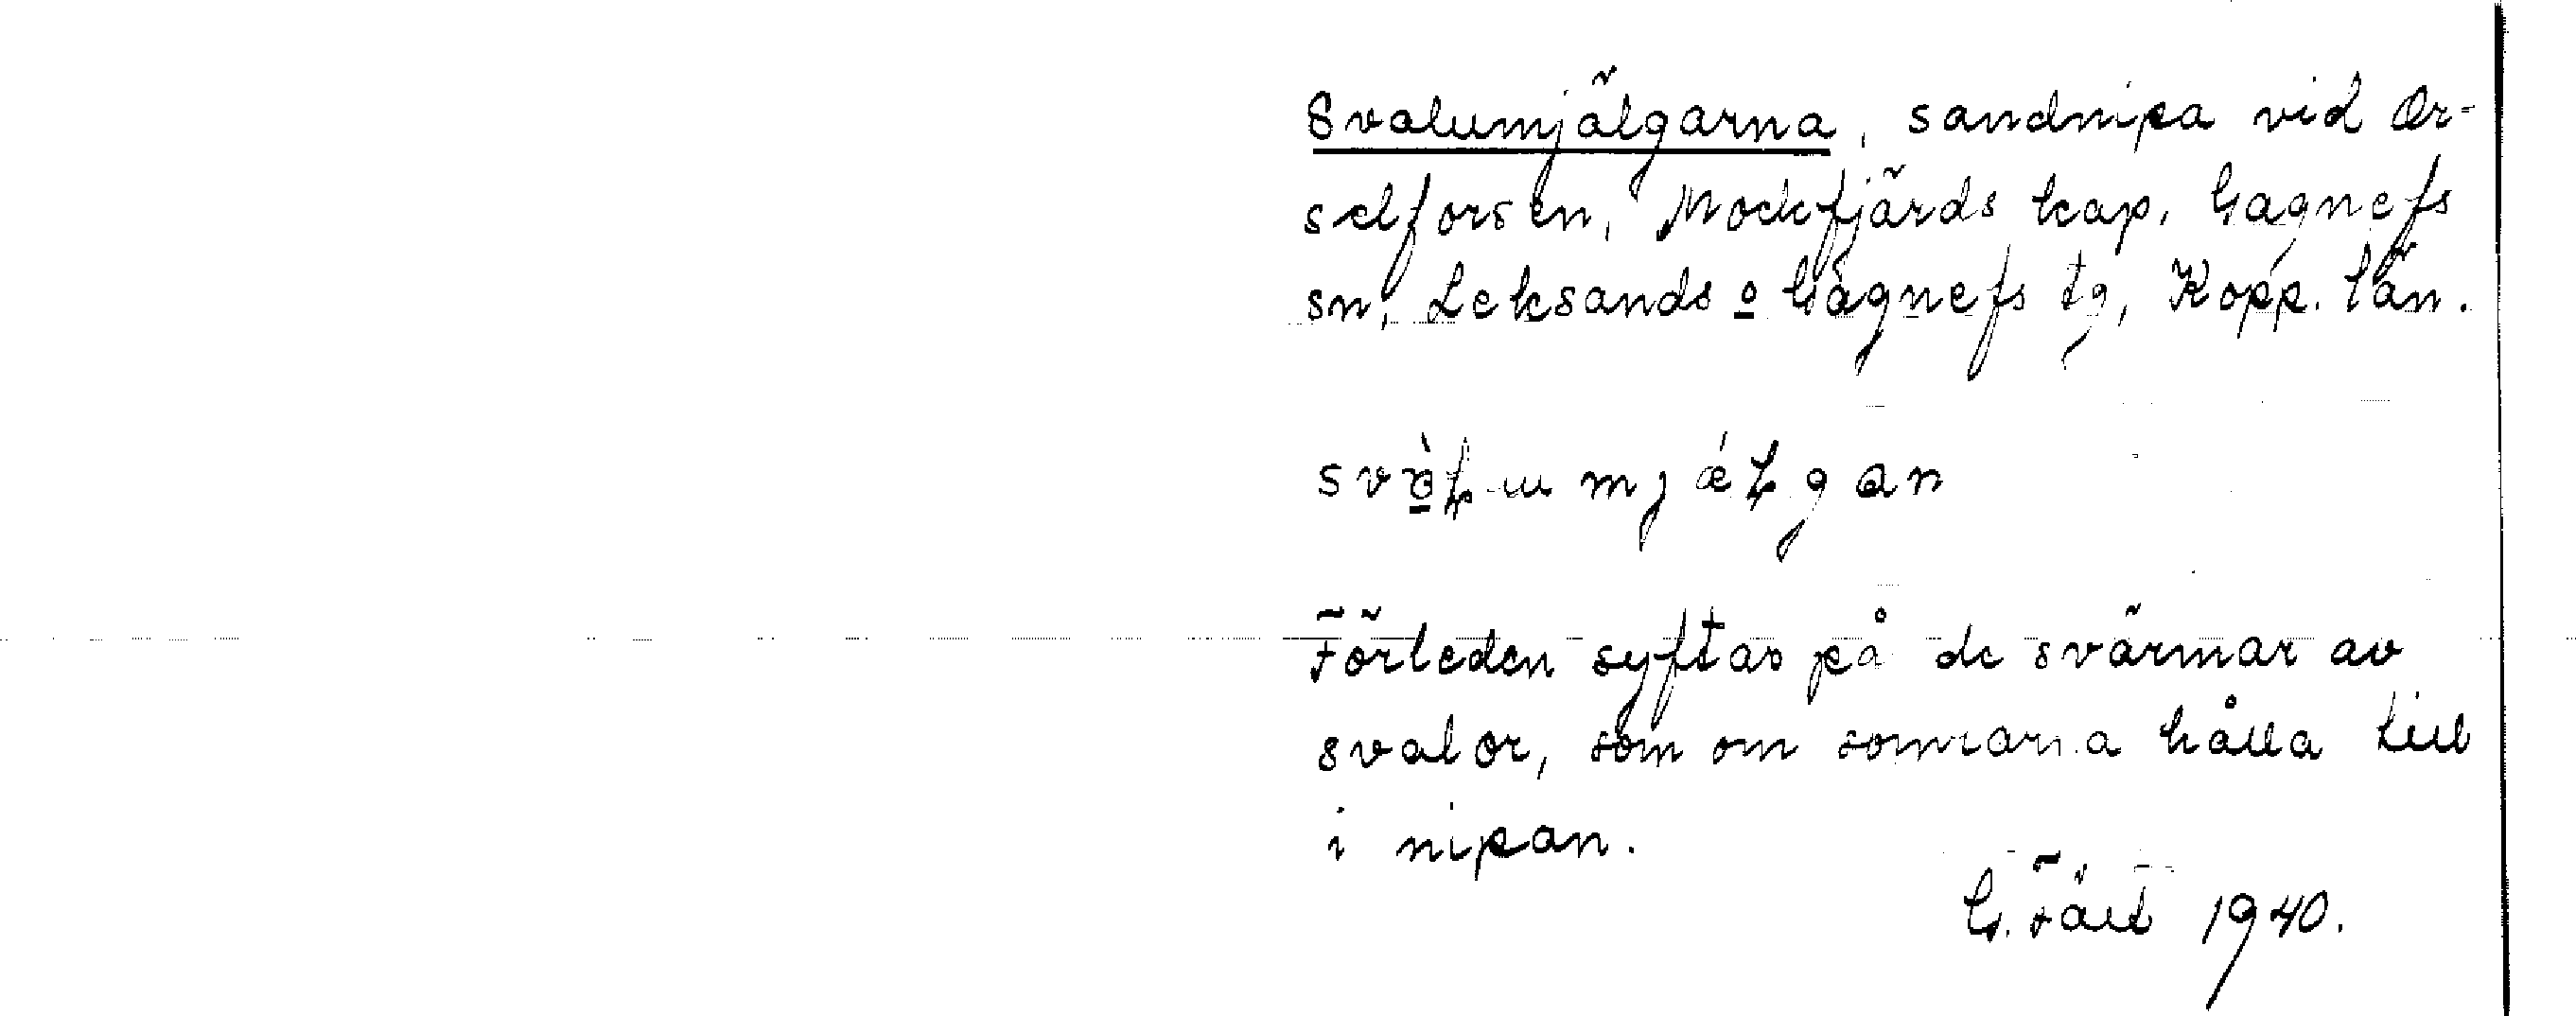 Svalumjälgarna, sandnipa vid Or-
selforsen, Mockfjärds kap, Gagnefs
sn, Leksands o Gagnefs tg, Kopp. län.
Förleden syftar på de svärmar av
svalor, som om somrarna hålla till
i nipan.
G. Fält 1940.